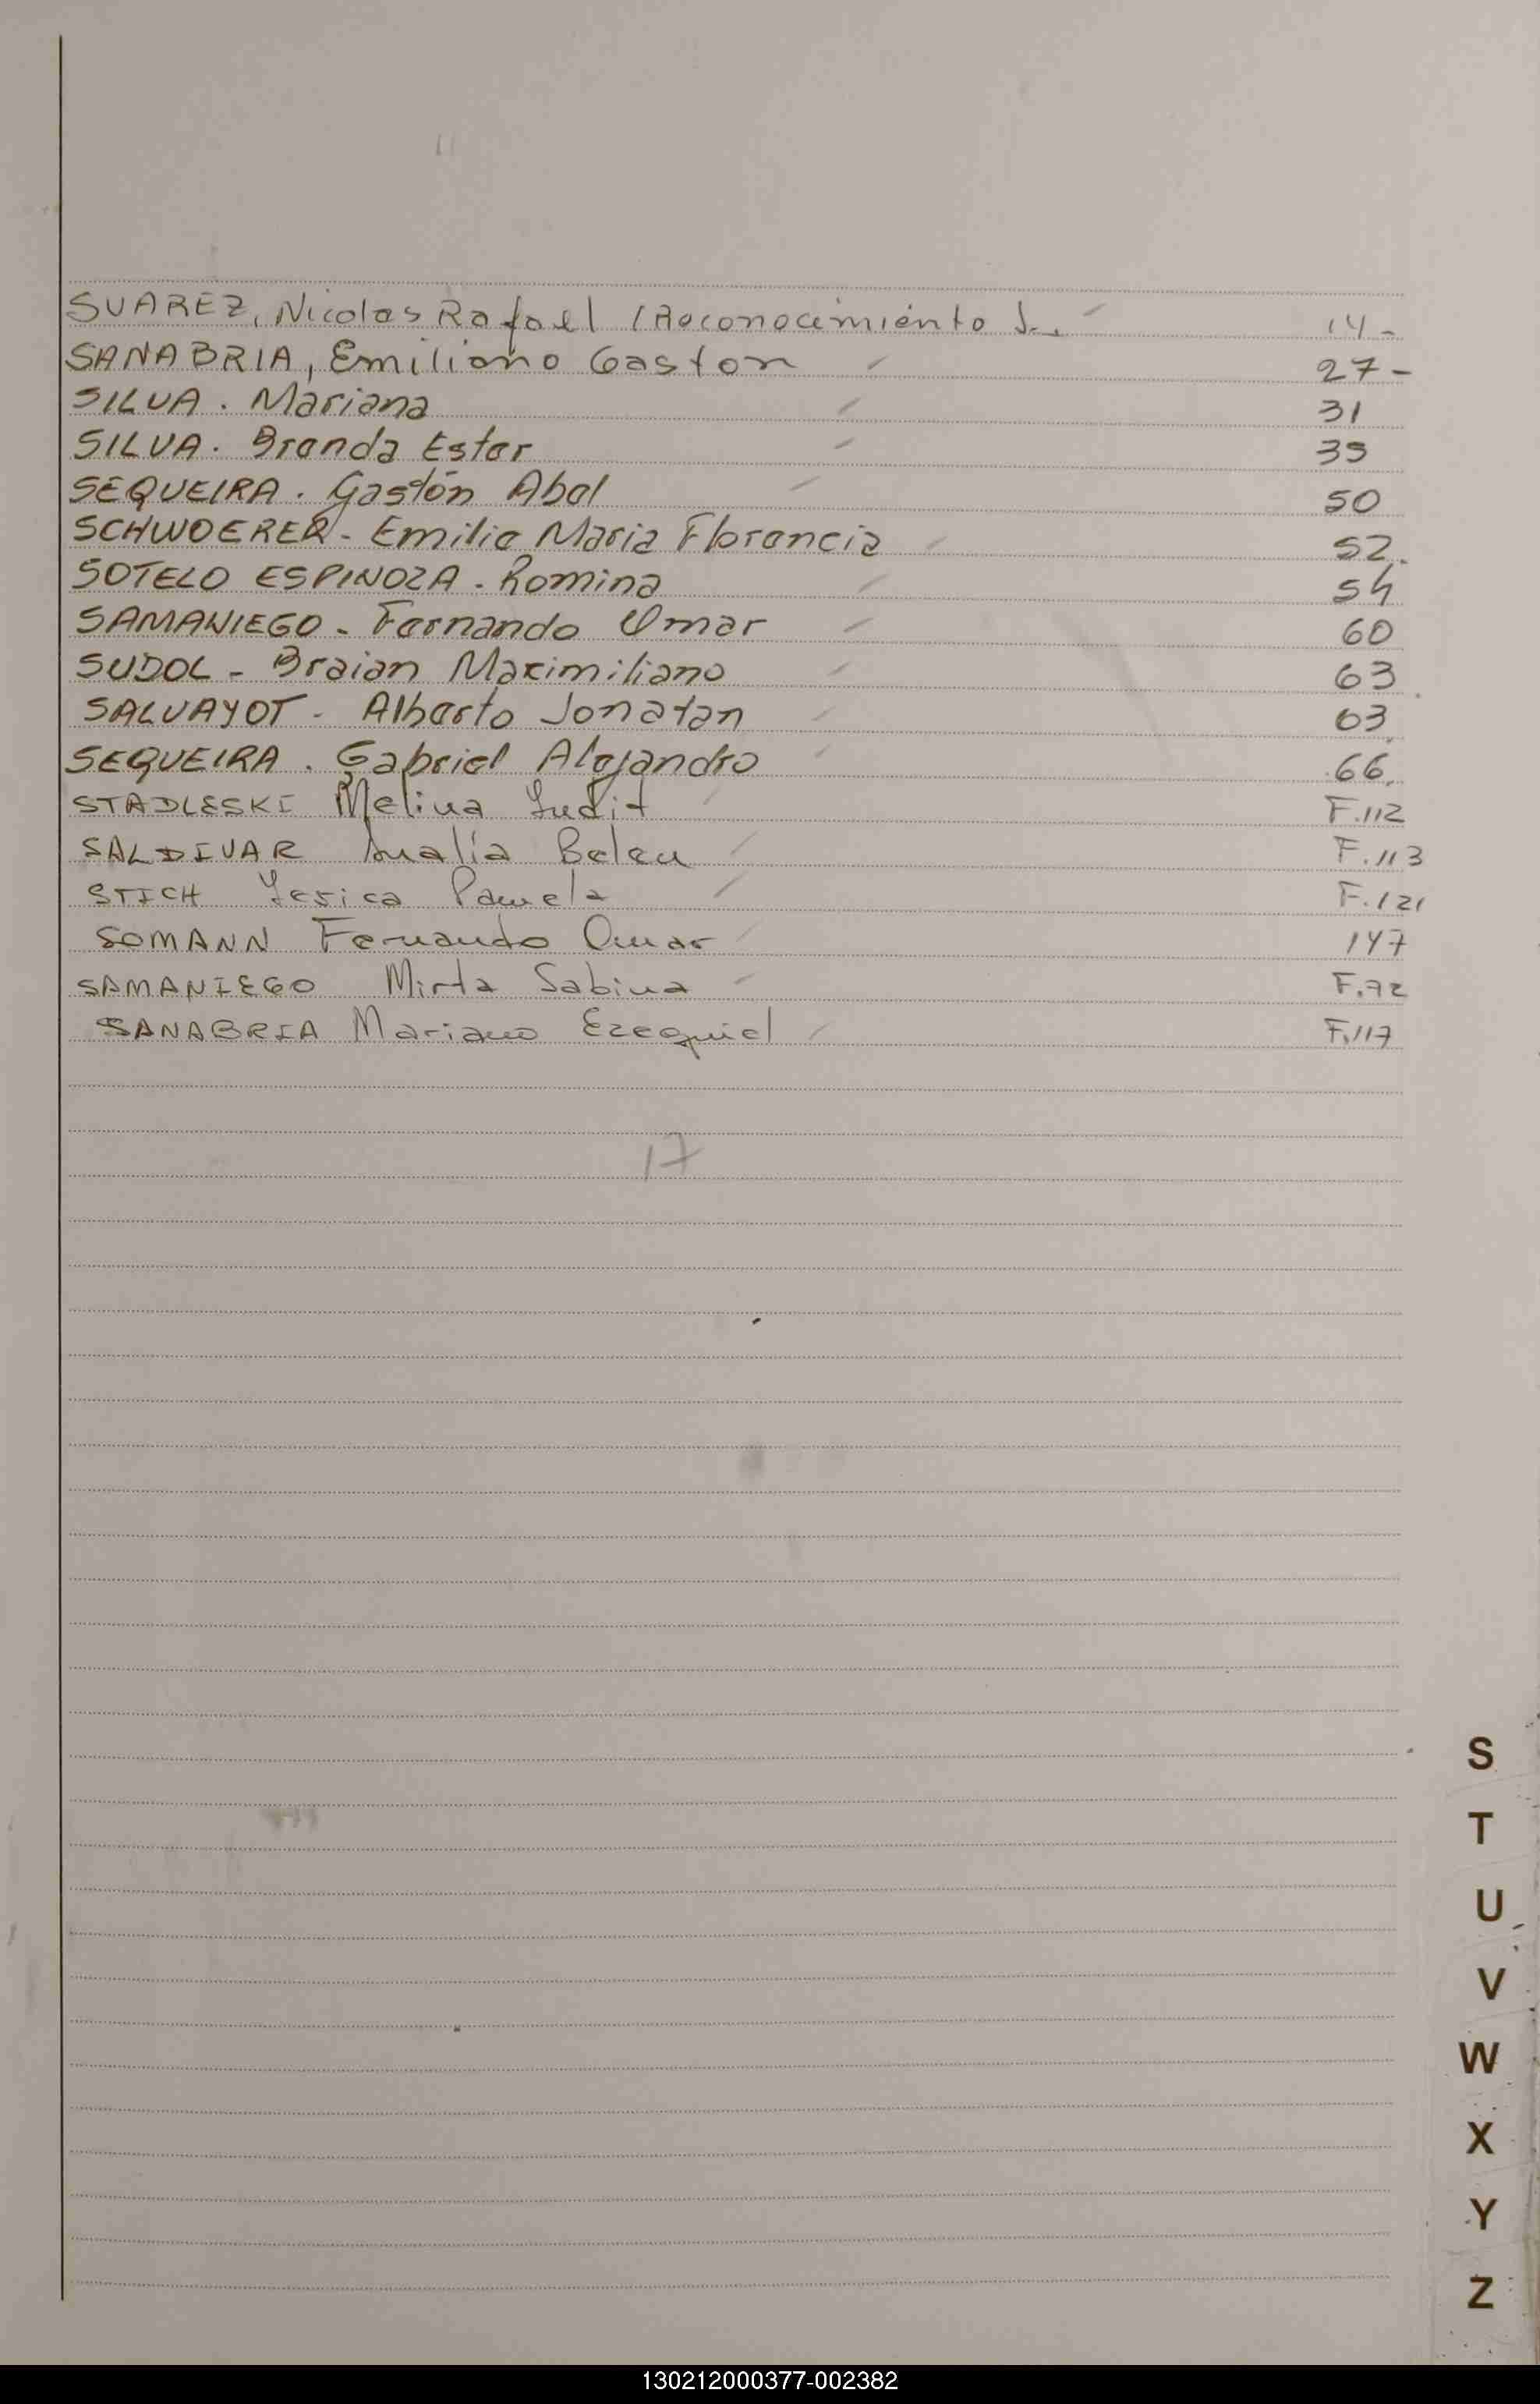 SUAREZ, Nicolas Rafael (Reconocimiento J... 14-
SANABRIA, Emiliano Gaston 27-
SILVA. Mariana 31
SILVA. Brenda Ester 39
SEQUEIRA. Gastón Abel 50
SCHWOERER - Emilie Maria Florencia 52.
SOTELO ESPINOZA - Romina 54
SAMANIEGO - Fernando Omar 60
SUDOL - Braian Maximiliano 63
SALVAYOT - Alberto Jonatan 63
SEQUEIRA. Gabriel Alejandro 66
STADLESKI Melina Judit F.112
SALDIVAR Analía Belen F.113
STICH Yesica Pamela F.121
SOMANN Fernando Omar 147
SAMANIEGO Mirta Sabina F.72
SANABRIA Mariano Ezequiel F.117
17
S
T
U
V
W
X
Y
Z
130212000377-002382